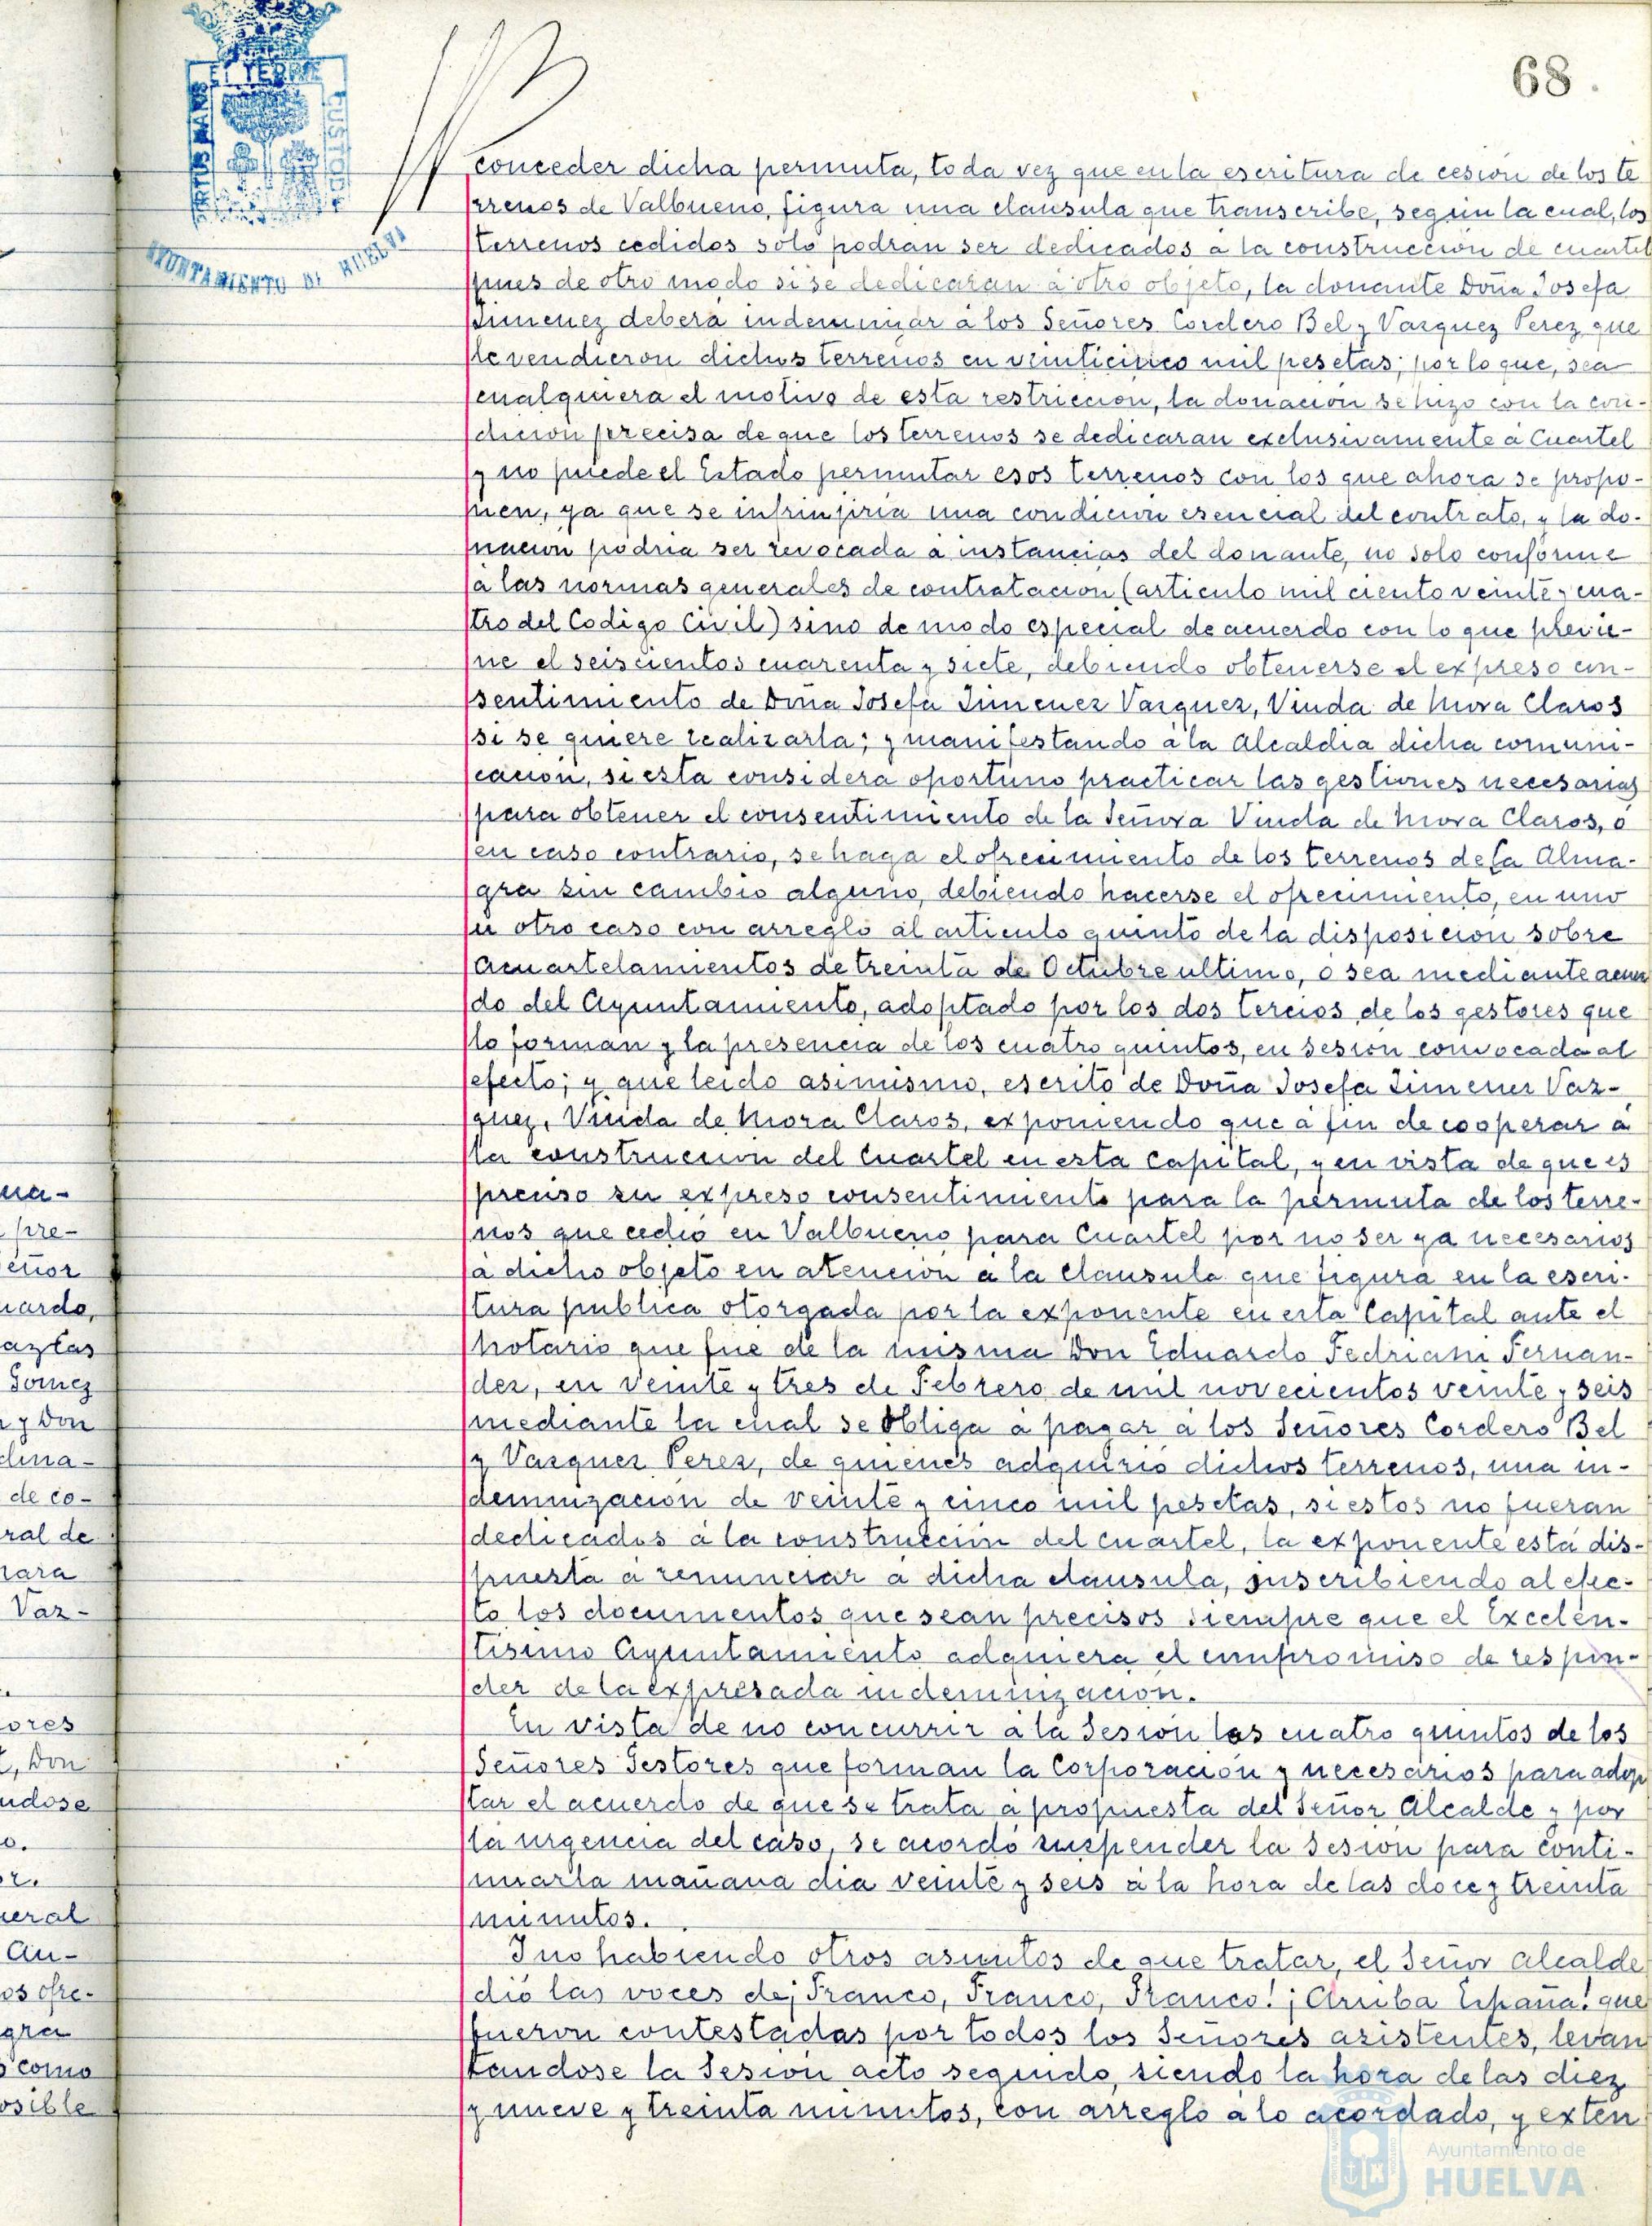 68.
AYUNTAMIENTO DE HUELVA
conceder dicha permuta, toda vez que en la escritura de cesion de los te
rrenos de Valbueno, figura una clausula que transcribe, según la cual, los
terrenos cedidos solo podran ser dedicados a la construccion de cuartel
pues de otro modo si se dedicaran a otro objeto, la donante Doña Josefa
Jimenez deberá indemnizar a los Señores Cordero Bel y Vazquez Perez que
le vendieron dichos terrenos en veinticinco mil pesetas; por lo que, sea
cualquiera el motivo de esta restriccion, la donacion se hizo con la con-
dicion precisa de que los terrenos se dedicaran exclusivamente a Cuartel
y no puede el Estado permutar esos terrenos con los que ahora se propo-
nen, ya que se infrinjiria una condicion esencial del contrato, y la do-
nacion podria ser revocada a instancias del donante, no solo conforme
a las normas generales de contratacion (articulo mil ciento veinte y cua-
tro del Codigo Civil) sino de modo especial de acuerdo con lo que previe-
ne el seiscientos cuarenta y siete, debiendo obtenerse el expreso con-
sentimiento de Doña Josefa Jimenez Vazquez, Viuda de Mora Claros
si se quiere realizarla; y manifestando a la Alcaldia dicha comuni-
cacion, si esta considera oportuno practicar las gestiones necesarias
para obtener el consentimiento de la Señora Viuda de Mora Claros, o
en caso contrario, se haga el ofrecimiento de los terrenos de la Alma-
gra sin cambio alguno, debiendo hacerse el ofrecimiento, en uno
u otro caso con arreglo al articulo quinto de la disposicion sobre
Acuartelamientos de treinta de Octubre ultimo, o sea mediante acuer
do del Ayuntamiento, adoptado por los dos tercios de los gestores que
lo forman y la presencia de los cuatro quintos, en sesion convocada al
efecto; y que leido asimismo, escrito de Doña Josefa Jimenez Vaz-
quez, Viuda de Mora Claros, exponiendo que a fin de cooperar a
la construccion del Cuartel en esta Capital, y en vista de que es
preciso su expreso consentimiento para la permuta de los terre-
nos que cedió en Valbueno para Cuartel por no ser ya necesarios
a dicho objeto en atencion a la clausula que figura en la escri-
tura publica otorgada por la exponente en esta Capital ante el
Notario que fue de la misma Don Eduardo Fedriani Fernan-
dez, en veinte y tres de Febrero de mil novecientos veinte y seis
mediante la cual se obliga a pagar a los Señores Cordero Bel
y Vazquez Perez, de quienes adquirió dichos terrenos, una in-
demnizacion de veinte y cinco mil pesetas, si estos no fueran
dedicados a la construccion del cuartel, la exponente está dis-
puesta a renunciar a dicha clausula, suscribiendo al efec-
to los documentos que sean precisos siempre que el Excelen-
tisimo Ayuntamiento adquiera el compromiso de respon-
der de la expresada indemnizacion.
En vista de no concurrir a la Sesion los cuatro quintos de los
Señores Gestores que forman la Corporacion y necesarios para adop
tar el acuerdo de que se trata a propuesta del Señor Alcalde y por
la urgencia del caso, se acordó suspender la Sesion para conti-
nuarla mañana dia veinte y seis a la hora de las doce y treinta
minutos.
Y no habiendo otros asuntos de que tratar, el Señor Alcalde
dió las voces de ¡Franco, Franco, Franco! ¡Arriba España! que
fueron contestadas por todos los Señores asistentes, levan
tandose la Sesion acto seguido, siendo la hora de las diez
y nueve y treinta minutos, con arreglo a lo acordado, y exten
ua-
pre-
eñor
uardo,
az las
Gomez
y Don
dina-
de co-
ral de
rara
Vaz-
ores
, Don
udose
o.
r.
neral
au-
os ofre-
gra
o como
osible
Ayuntamiento de
HUELVA